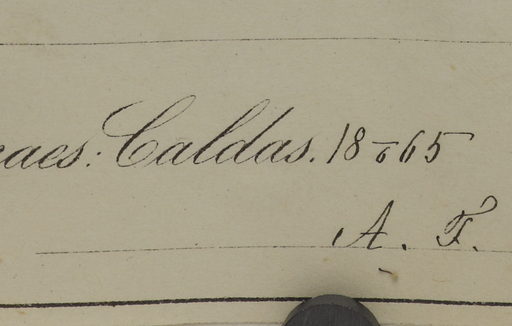 aes: Caldas. 18 6 65
A. F.